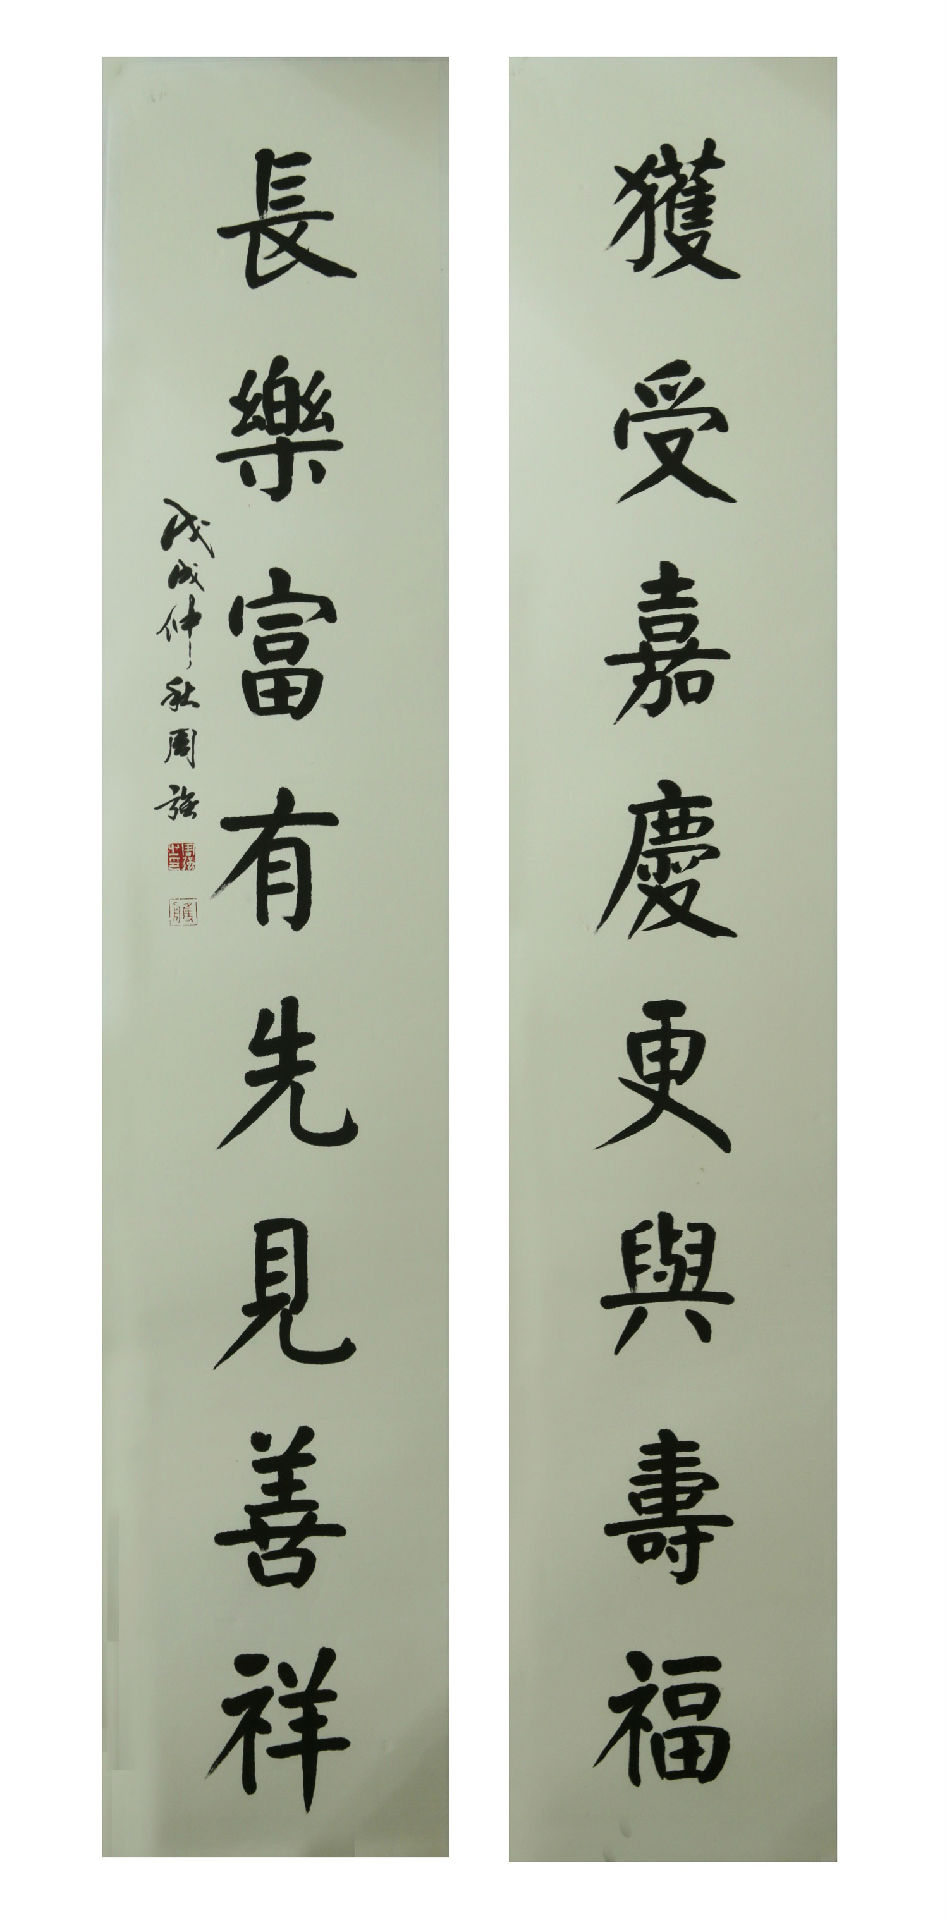 獲受嘉慶更與壽福
長樂富有先見善祥
戊戌仲秋周強